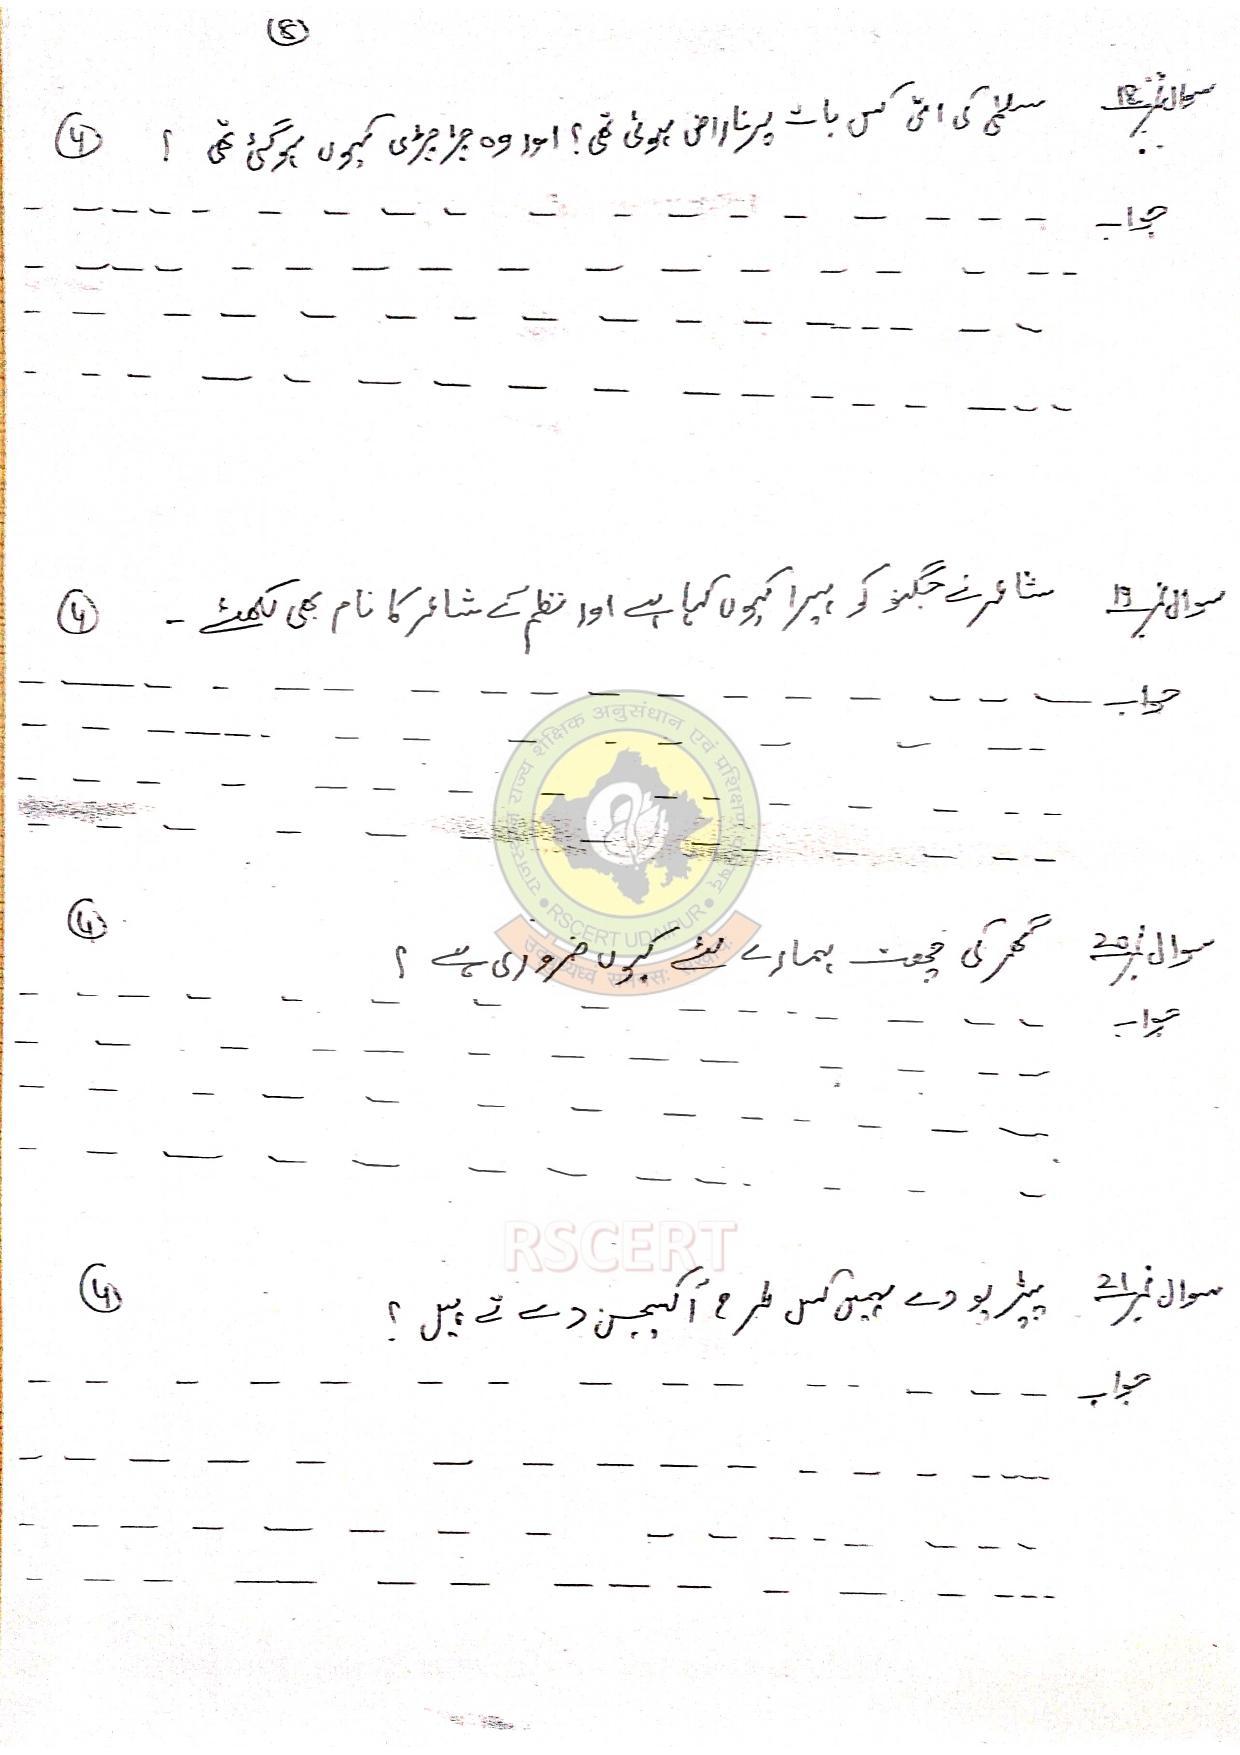 8
سوال نمبر 18 سلمٰی کی امّی کس بات پر ناراض ہوئی تھی؟ اور وہ چڑچڑی کیوں ہوگئی تھی ؟ 4
جواب
سوال نمبر 19 شاعر نے جگنو کو ہیرا کیوں کہا ہے اور نظم کے شاعر کا نام بھی لکھئے - 4
جواب
राजस्थान राज्य शैक्षिक अनुसंधान एवं प्रशिक्षण परिषद्
RSCERT UDAIPUR
سوال نمبر 20 گھر کی چھت ہمارے لئے کیوں ضروری ہے ؟ 4
جواب
RSCERT
سوال نمبر 21 پیڑ پودے ہمیں کس طرح آکسیجن دے تے ہیں ؟ 4
جواب